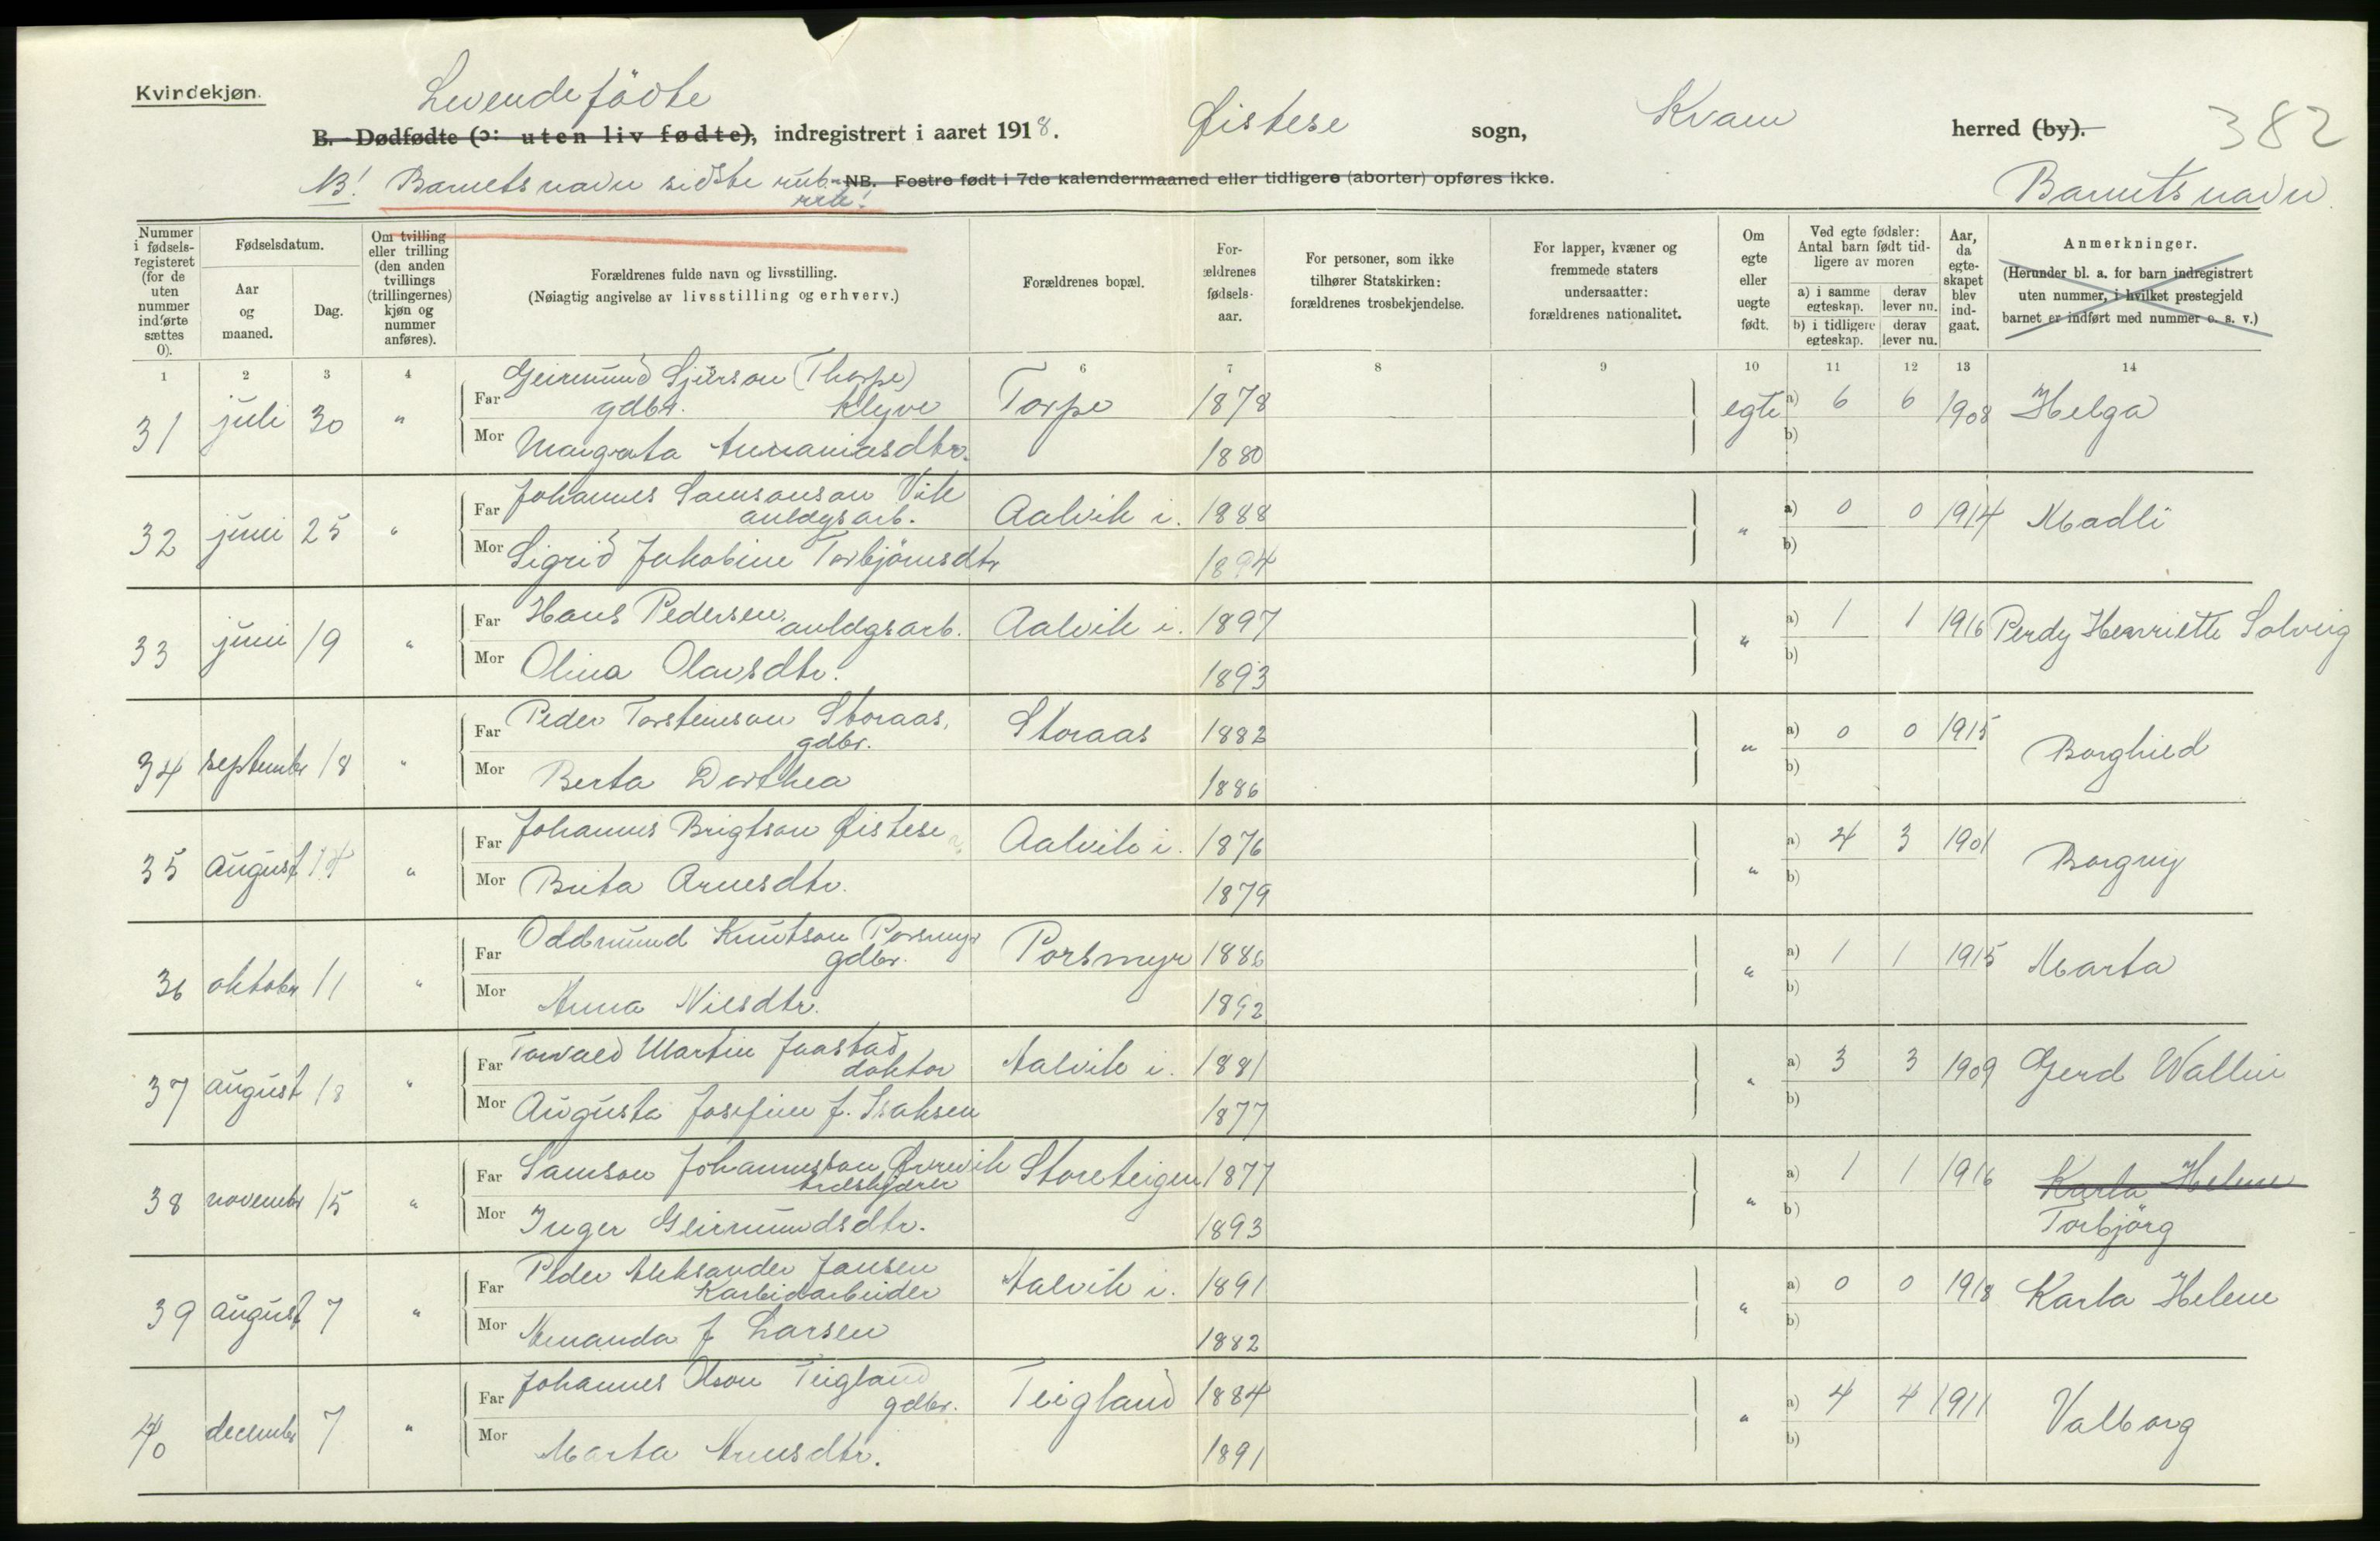 Kvindekjøn.
Levendefödte
B. Dødfødte (ɔ: uten liv fødte), indregistrert i aaret 1918. Øistese sogn, Kvam herred (by). 382
NB! Barnets navn sidste rub- NB. Fostre født i 7de kalendermaaned eller tidligere (aborter) opføres ikke. Barnets navn
Nummer i fødsels-registeret (for de uten nummer indførte sættes 0).
Fødselsdatum.
Aar og maaned.
Dag.
Om tvilling eller trilling (den anden tvillings (trillingernes) kjøn og nummer anføres).
Forældrenes fulde navn og livsstilling.
(Nøiagtig angivelse av livsstilling og erhverv.)
Forældrenes bopæl.
For-ældrenes fødsels-aar.
For personer, som ikke tilhører Statskirken: forældrenes trosbekjendelse.
For lapper, kvæner og fremmede staters undersaatter: forældrenes nationalitet.
Om egte eller uegte født.
Ved egte fødsler: Antal barn født tid-ligere av moren
a) i samme egteskap. derav lever nu.
b) i tidligere egteskap. derav lever nu.
Aar, da egte-skapet blev ind-gaat.
Anmerkninger.
(Herunder bl. a. for barn indregistrert uten nummer, i hvilket prestegjeld barnet er indført med nummer o. s. v.)
1 2 3 4 6 7 8 9 10 11 12 13 14
Geirmund Sjurson (Thorpe)
31 juli 30 " Far gdbr. Klyve Torpe 1878 egte a) 6 6 1908 Helga
Mor Margrata Ananiasdtr. 1880 b)
Johannes Samsonson Vik
32 juni 25 " Far anldgsarb. Aalvik i. 1888 " a) 0 0 1914 Madli
Mor Sigrid Jakobine Torbjörnsdtr 1894 b)
33 juni 19 " Far Hans Pedersen, anldgsarb. Aalvik i. 1897 " a) 1 1 1916 Perdy Henriette Solveig
Mor Olina Olavsdtr. 1893 b)
Peder Torsteinson Storaas,
34 septembr 18 " Far gdbr. Storaas 1882 " a) 0 0 1915 Borghild
Mor Berta Dorthea 1886 b)
35 august 14 " Far Johannes Brigtson Øistese Aalvik i. 1876 " a) 4 3 1901 Borgny
Mor Brita Arnesdtr. 1879 b)
Oddmund Knutson Porsmyr
36 oktobr 11 " Far gdbr. Porsmyr 1886 " a) 1 1 1915 Marta
Mor Anna Nilsdtr. 1892 b)
Torvald Martin Jaastad
37 august 18 " Far doktor Aalvik i. 1881 " a) 3 3 1909 Gerd Wallin
Mor Augusta Josefine J. Isaksen 1877 b)
Samson Johannesson Øvrevik
38 novembr 15 " Far Storeteigen 1877 " a) 1 1 1916 Karla Helene
Mor Inger Geirmundsdtr. 1893 b) Torbjörg
Peder Aleksander Jansen
39 august 7 " Far Karbidarbeider Aalvik i. 1891 " a) 0 0 1918 Karla Helene
Mor Amanda J Larsen 1882 b)
Johannes Olson Teigland
40 decembr 7 " Far gdbr. Teigland 1884 " a) 4 4 1911 Valborg
Mor Marta Arnesdtr. 1891 b)